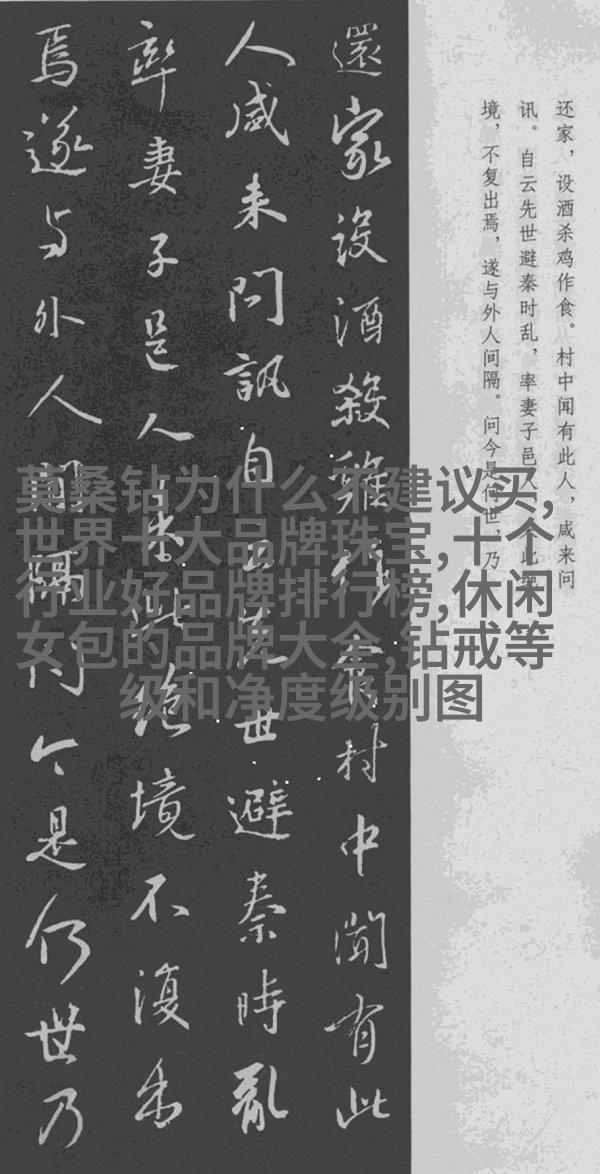 还家，设酒杀鸡作食。村中闻有此人，咸来问
讯。自云先世避秦时乱，率妻子邑人来此绝
境，不复出焉，遂与外人间隔。问今是何世，乃
還家設酒殺雞作食村中聞有此
人咸来問訊自云先世避秦時亂
率妻子邑人来此絶境不復出
焉遂与外人間隔問今是何世乃
莫桑钻为什么不建议买,
世界十大品牌珠宝,十个
行业好品牌排行榜,休闲
女包的品牌大全,钻戒等
级和净度级别图